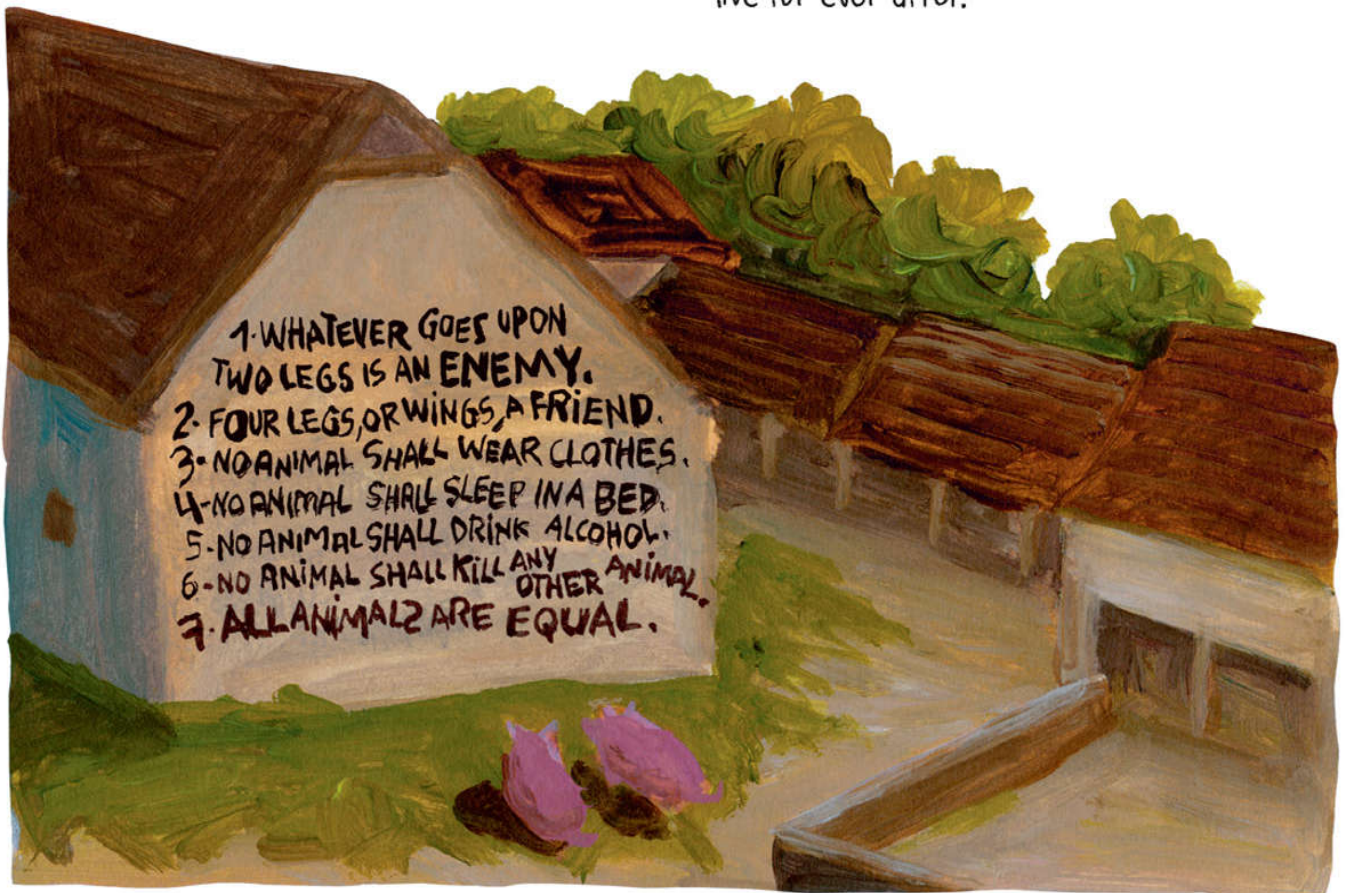 live for ever after.
1. WHATEVER GOES UPON
TWO LEGS IS AN ENEMY.
2. FOUR LEGS, OR WINGS, A FRIEND.
3. NO ANIMAL SHALL WEAR CLOTHES.
4-NO ANIMAL SHALL SLEEP IN A BED.
5-NO ANIMAL SHALL DRINK ALCOHOL.
6-NO ANIMAL SHALL KILL ANY OTHER ANIMAL.
7. ALL ANIMALS ARE EQUAL.